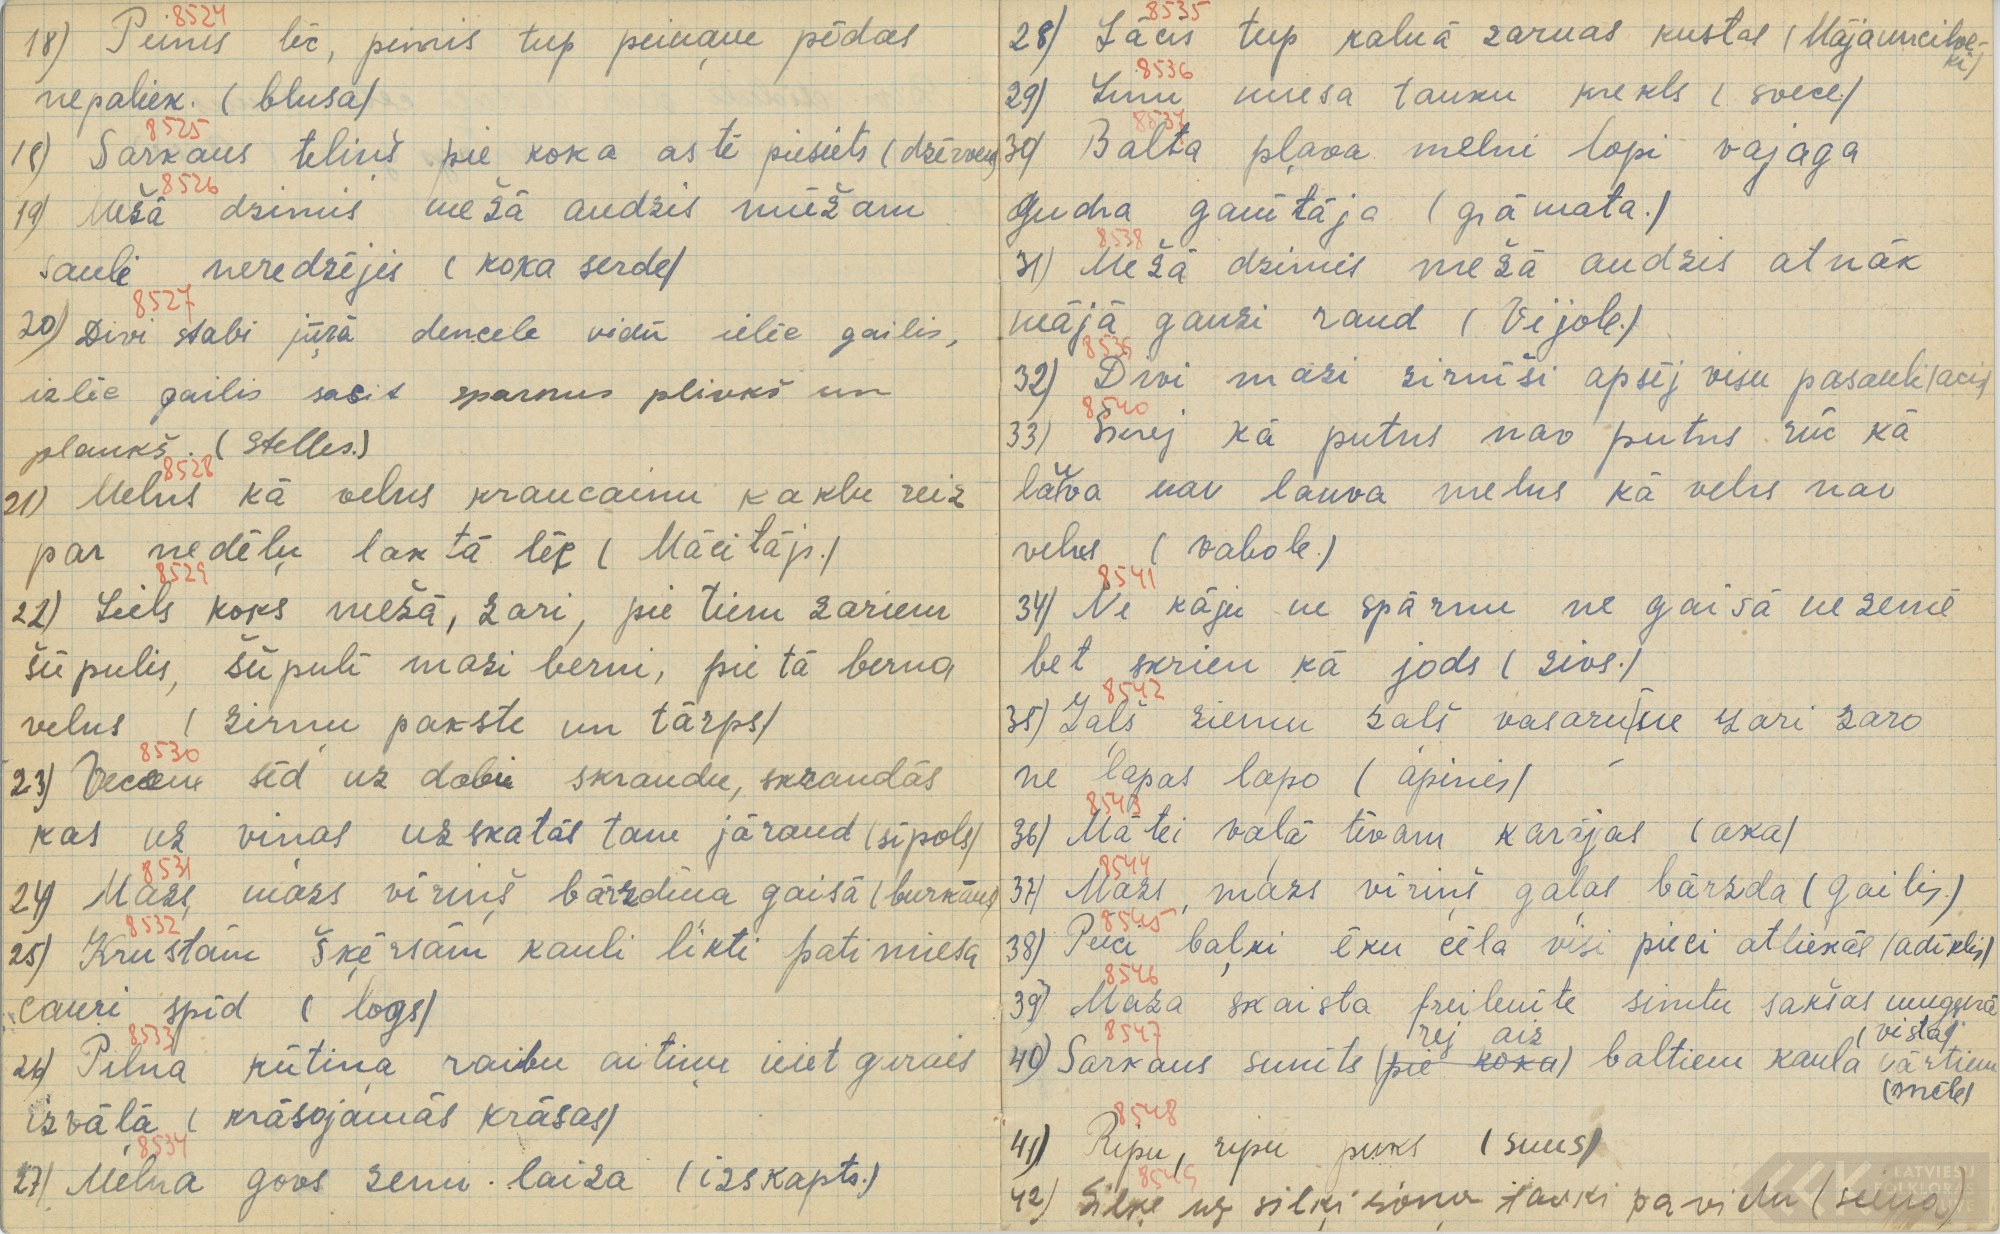 8524
18) Peinis lēc, pinnis tup peinam pēdas
nepaliek. (blusa)
8525
18) Sarkans teliņš pie koka astē piesiets (dzērvene)
8526
19) Mežā dzimis mežā audzis mūžam
sauli neredzējis (koka serde)
8527
20) Divi stabi jūŗā dencele vidū ielēc gailis,
izlēc gailis sacit sparnus plivkš un
plaukš. (Stelles.)
8528
21) Melns kā velns kraucainu kaklu reiz
par nedēļu laktā lēc (Mācitājs.)
8529
22) Liels koks mežā, zari, pie tiem zariem
šūpulis, šūpulī mazi berni, pie tā berna
velns (zirņu pākste un tārps)
8530
23) Veceene sēd uz dobi skrandu, skrandās
kas uz viņas uzskatās tam jāraud (sīpols)
8531
24) Mazs, mazs vīriņš bārzdiņa gaisā (burkāns)
8532
25) Krustām šķērsām kauli likti pati miesa
cauri spīd (logs)
8533
26) Pilna kūtiņa raibu aitiņu ieiet gernis
izvāļā (krāsojamās krāsas)
8534
27) Melna govs zemi laiza (izskapts.)
8535
28) Lācis tup kalnā zarnas kustas (Mājauncilveki)
8536
29) Linu miesa tauku krekls (svece.)
8537
30) Balta pļava melni lopi vajaga
Gudra ganītāja (grāmata.)
8538
31) Mežā dzimis mežā audzis atnāk
mājā gauži raud (Vijole.)
8539
32) Divi mazi zirnīši apsēj visu pasauli (acis)
8540
33) Skrej kā putns nav putns rūc kā
lauva nav lauva melns kā velns nav
velns (vabole.)
8541
34) Ne kāju ne spārnu ne gaisā ne zemē
bet skrien kā jods (zivs.)
8542
35) Zaļš ziemu zaļš vasaru ne zari zaro
ne lapas lapo (apinis)
8543
36) Mātei vaļā tēvam karājas (aka)
8544
37) Mazs, mazs vīriņš gaļas bārzda (gailis.)
8545
38) Pieci baļķi ēku cēla visi pieci atliekās (adiklis)
8546
39) Maza skaista freilenīte simtu sakšas muggurā
(vista)
8547
40) Sarkans sunīts (pie koka) rej aiz baltiem kaula vārtiem
(mēle)
8548
41) Ripu, ripu puks (suns)
8549
42) Silķe uz silķi sonu tauki pa vidu (siena)
LATVIEŠU
FOLKLORAS